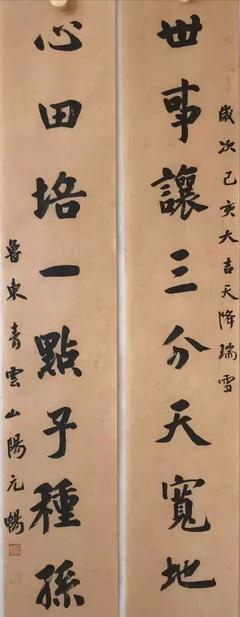 歲次己亥大吉天降瑞雪
世事讓三分天寬地
心田培一點子種孫
魯東青雲山陽元暢